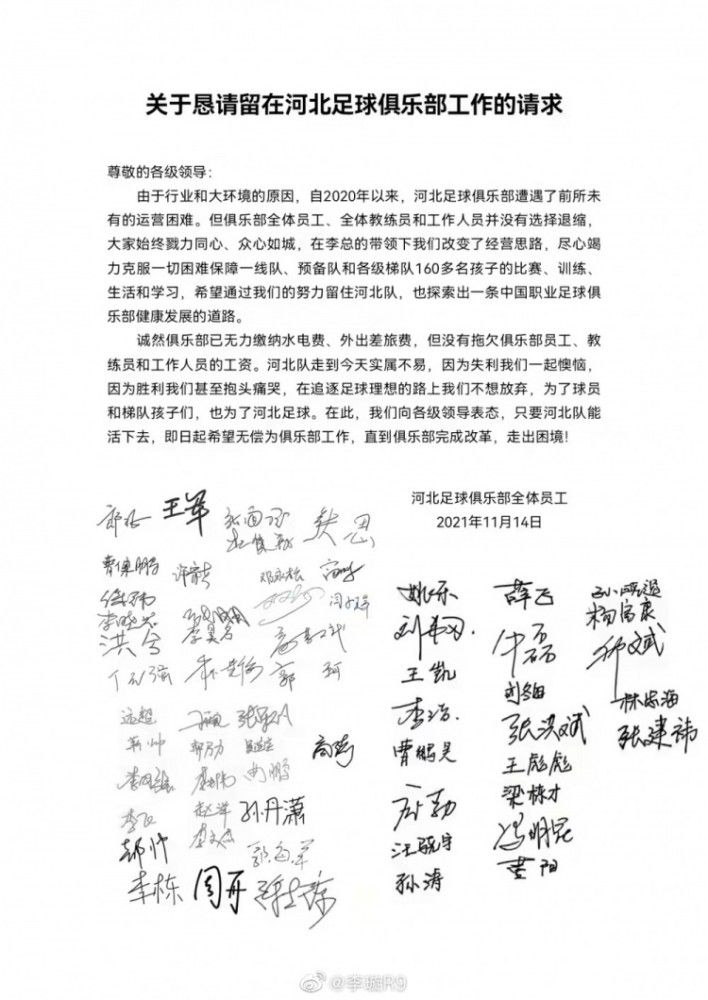 关于恳请留在河北足球俱乐部工作的请求
尊敬的各级领导：
由于行业和大环境的原因，自2020年以来，河北足球俱乐部遭遇了前所未
有的运营困难。但俱乐部全体员工、全体教练员和工作人员并没有选择退缩，
大家始终戮力同心、众心如城，在李总的带领下我们改变了经营思路，尽心竭
力克服一切困难保障一线队、预备队和各级梯队160多名孩子的比赛、训练、
生活和学习，希望通过我们的努力留住河北队，也探索出一条中国职业足球俱
乐部健康发展的道路。
诚然俱乐部已无力缴纳水电费、外出差旅费，但没有拖欠俱乐部员工、教
练员和工作人员的工资。河北队走到今天实属不易，因为失利我们一起懊恼，
因为胜利我们甚至抱头痛哭，在追逐足球理想的路上我们不想放弃，为了球员
和梯队孩子们，也为了河北足球。在此，我们向各级领导表态，只要河北队能
活下去，即日起希望无偿为俱乐部工作，直到俱乐部完成改革，走出困境!
河北足球俱乐部全体员工
2021年11月14日
王军
曹保鹏
洪兮
郭 珂
远超
孙丹潇
李栋 周开
姚乐
王凯
李浩
曹鹏昊
孙涛
薛飞
牛磊
张洪斌
王彪彪
梁栋才
冯明昆
杨富康
林忠海
张建祎
@李璇R9